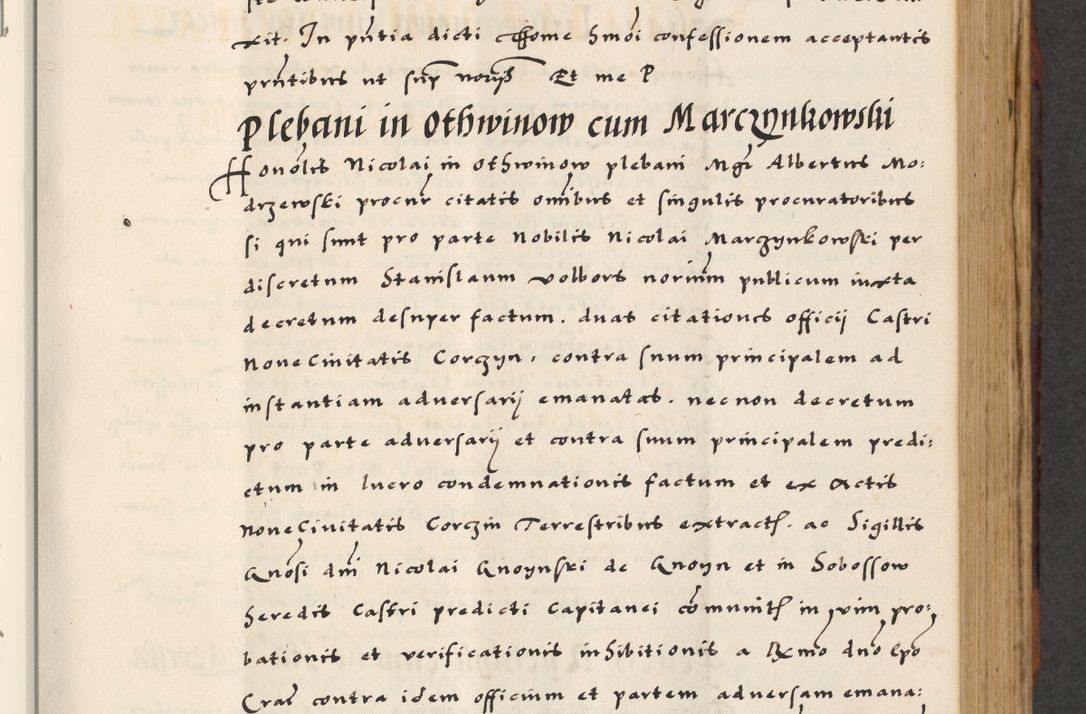 xit. In pñtia dicti Thome hmõi confessionem acceptantis
prñtibus ut sup̃ noris Et me P
Plebani in Othwinow cum Marczynkowski
Honõlis Nicolai in Othwinow plebani Mgr̃ Albertus Mo:
drzewski procur̃ citatis omĩbus et singulis procuratoribus
si qui sunt pro parte Nobilis Nicolai Marzynkowski per
discretum Stanislaum volbors noriũm publicum iuxta
decretum desuper factum. duas citationes officij Castri
Nove Civitatis Corczyn, contra suum principalem ad
instantiam adversarij emanatas. necnon decretum
pro parte adversarij et contra suum principalem predi:
ctum in lucro condemnationis factum et ex Actis
Nove Civitatis Corczin Terrestribus extract. ac Sigillis
Gnõsi dnĩ Nicolai Gnoynski de Gnoyn et in Sobossow
heredis Castri predicti Capitanei cõmunit in vim pro:
bationis et verificationis inhibitionis a Rx̃mo dño Ep̃o
Crac̃ contra idem officium et partem adversam emana: